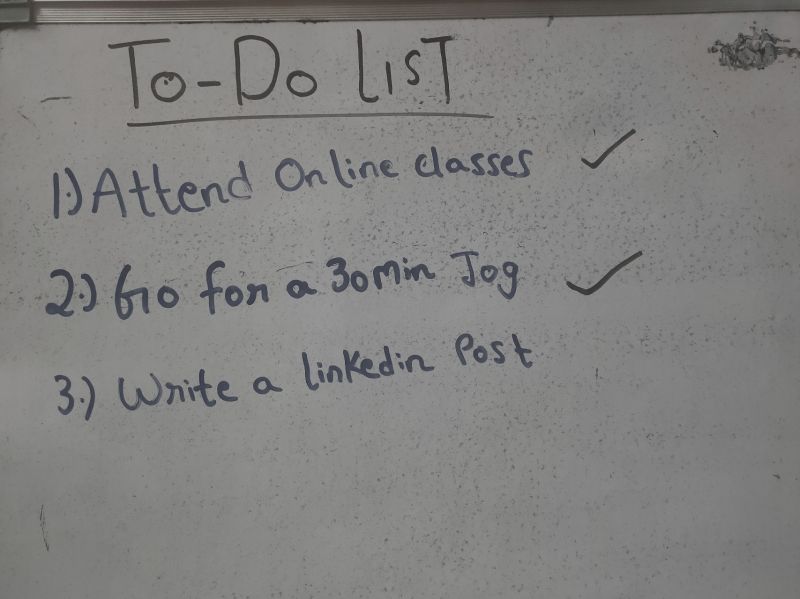 To-Do LIST
1.) Attend Online classes ✓
2.) Go for a 30min Jog ✓
3.) Write a linkedin Post